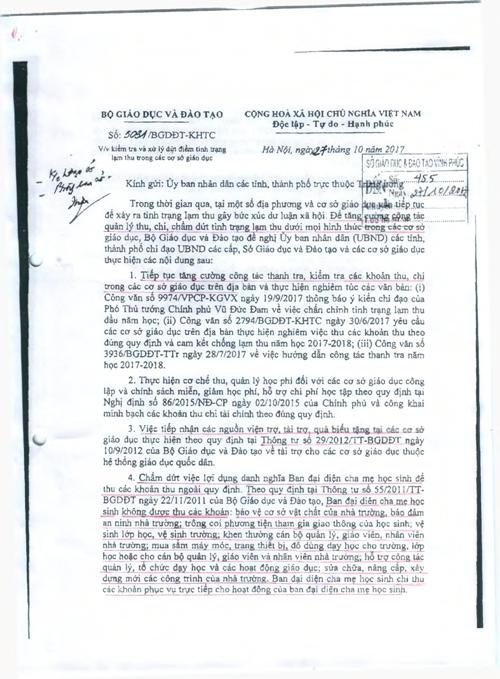 BỘ GIÁO DỤC VÀ ĐÀO TẠO
CỘNG HOÀ XÃ HỘI CHỦ NGHĨA VIỆT NAM
Độc lập - Tự do - Hạnh phúc
Số: 5031/BGDĐT-KHTC
V/v kiểm tra và xử lý dứt điểm tình trạng
lạm thu trong các cơ sở giáo dục
Hà Nội, ngày 27 tháng 10 năm 2017
SỞ GIÁO DỤC & ĐÀO TẠO VĨNH PHÚC
Số: 455
Kính gửi: Ủy ban nhân dân các tỉnh, thành phố trực thuộc Trung ương
Trong thời gian qua, tại một số địa phương và cơ sở giáo dục vẫn tiếp tục
để xảy ra tình trạng lạm thu gây bức xúc dư luận xã hội. Để tăng cường công tác
quản lý thu, chi, chấm dứt tình trạng lạm thu dưới mọi hình thức trong các cơ sở
giáo dục, Bộ Giáo dục và Đào tạo đề nghị Ủy ban nhân dân (UBND) các tỉnh,
thành phố chỉ đạo UBND các cấp, Sở Giáo dục và Đào tạo và các cơ sở giáo dục
thực hiện các nội dung sau:
1. Tiếp tục tăng cường công tác thanh tra, kiểm tra các khoản thu, chi
trong các cơ sở giáo dục trên địa bàn và thực hiện nghiêm túc các văn bản: (i)
Công văn số 9974/VPCP-KGVX ngày 19/9/2017 thông báo ý kiến chỉ đạo của
Phó Thủ tướng Chính phủ Vũ Đức Đam về việc chấn chỉnh tình trạng lạm thu
đầu năm học; (ii) Công văn số 2794/BGDĐT-KHTC ngày 30/6/2017 yêu cầu
các cơ sở giáo dục trên địa bàn thực hiện nghiêm việc thu các khoản thu theo
đúng quy định và cam kết chống lạm thu năm học 2017-2018; (iii) Công văn số
3936/BGDĐT-TTr ngày 28/7/2017 về việc hướng dẫn công tác thanh tra năm
học 2017-2018.
2. Thực hiện cơ chế thu, quản lý học phí đối với các cơ sở giáo dục công
lập và chính sách miễn, giảm học phí, hỗ trợ chi phí học tập theo quy định tại
Nghị định số 86/2015/NĐ-CP ngày 02/10/2015 của Chính phủ và công khai
minh bạch các khoản thu chi tài chính theo đúng quy định.
3. Việc tiếp nhận các nguồn viện trợ, tài trợ, quà biếu tặng tại các cơ sở
giáo dục thực hiện theo quy định tại Thông tư số 29/2012/TT-BGDĐT ngày
10/9/2012 của Bộ Giáo dục và Đào tạo về tài trợ cho các cơ sở giáo dục thuộc
hệ thống giáo dục quốc dân.
4. Chấm dứt việc lợi dụng danh nghĩa Ban đại diện cha mẹ học sinh để
thu các khoản thu ngoài quy định. Theo quy định tại Thông tư số 55/2011/TT-
BGDĐT ngày 22/11/2011 của Bộ Giáo dục và Đào tạo, Ban đại diện cha mẹ học
sinh không được thu các khoản: bảo vệ cơ sở vật chất của nhà trường, bảo đảm
an ninh nhà trường; trông coi phương tiện tham gia giao thông của học sinh; vệ
sinh lớp học, vệ sinh trường; khen thưởng cán bộ quản lý, giáo viên, nhân viên
nhà trường; mua sắm máy móc, trang thiết bị, đồ dùng dạy học cho trường, lớp
học hoặc cho cán bộ quản lý, giáo viên và nhân viên nhà trường; hỗ trợ công tác
quản lý, tổ chức dạy học và các hoạt động giáo dục; sửa chữa, nâng cấp, xây
dựng mới các công trình của nhà trường. Ban đại diện cha mẹ học sinh chỉ thu
các khoản phục vụ trực tiếp cho hoạt động của ban đại diện cha mẹ học sinh.